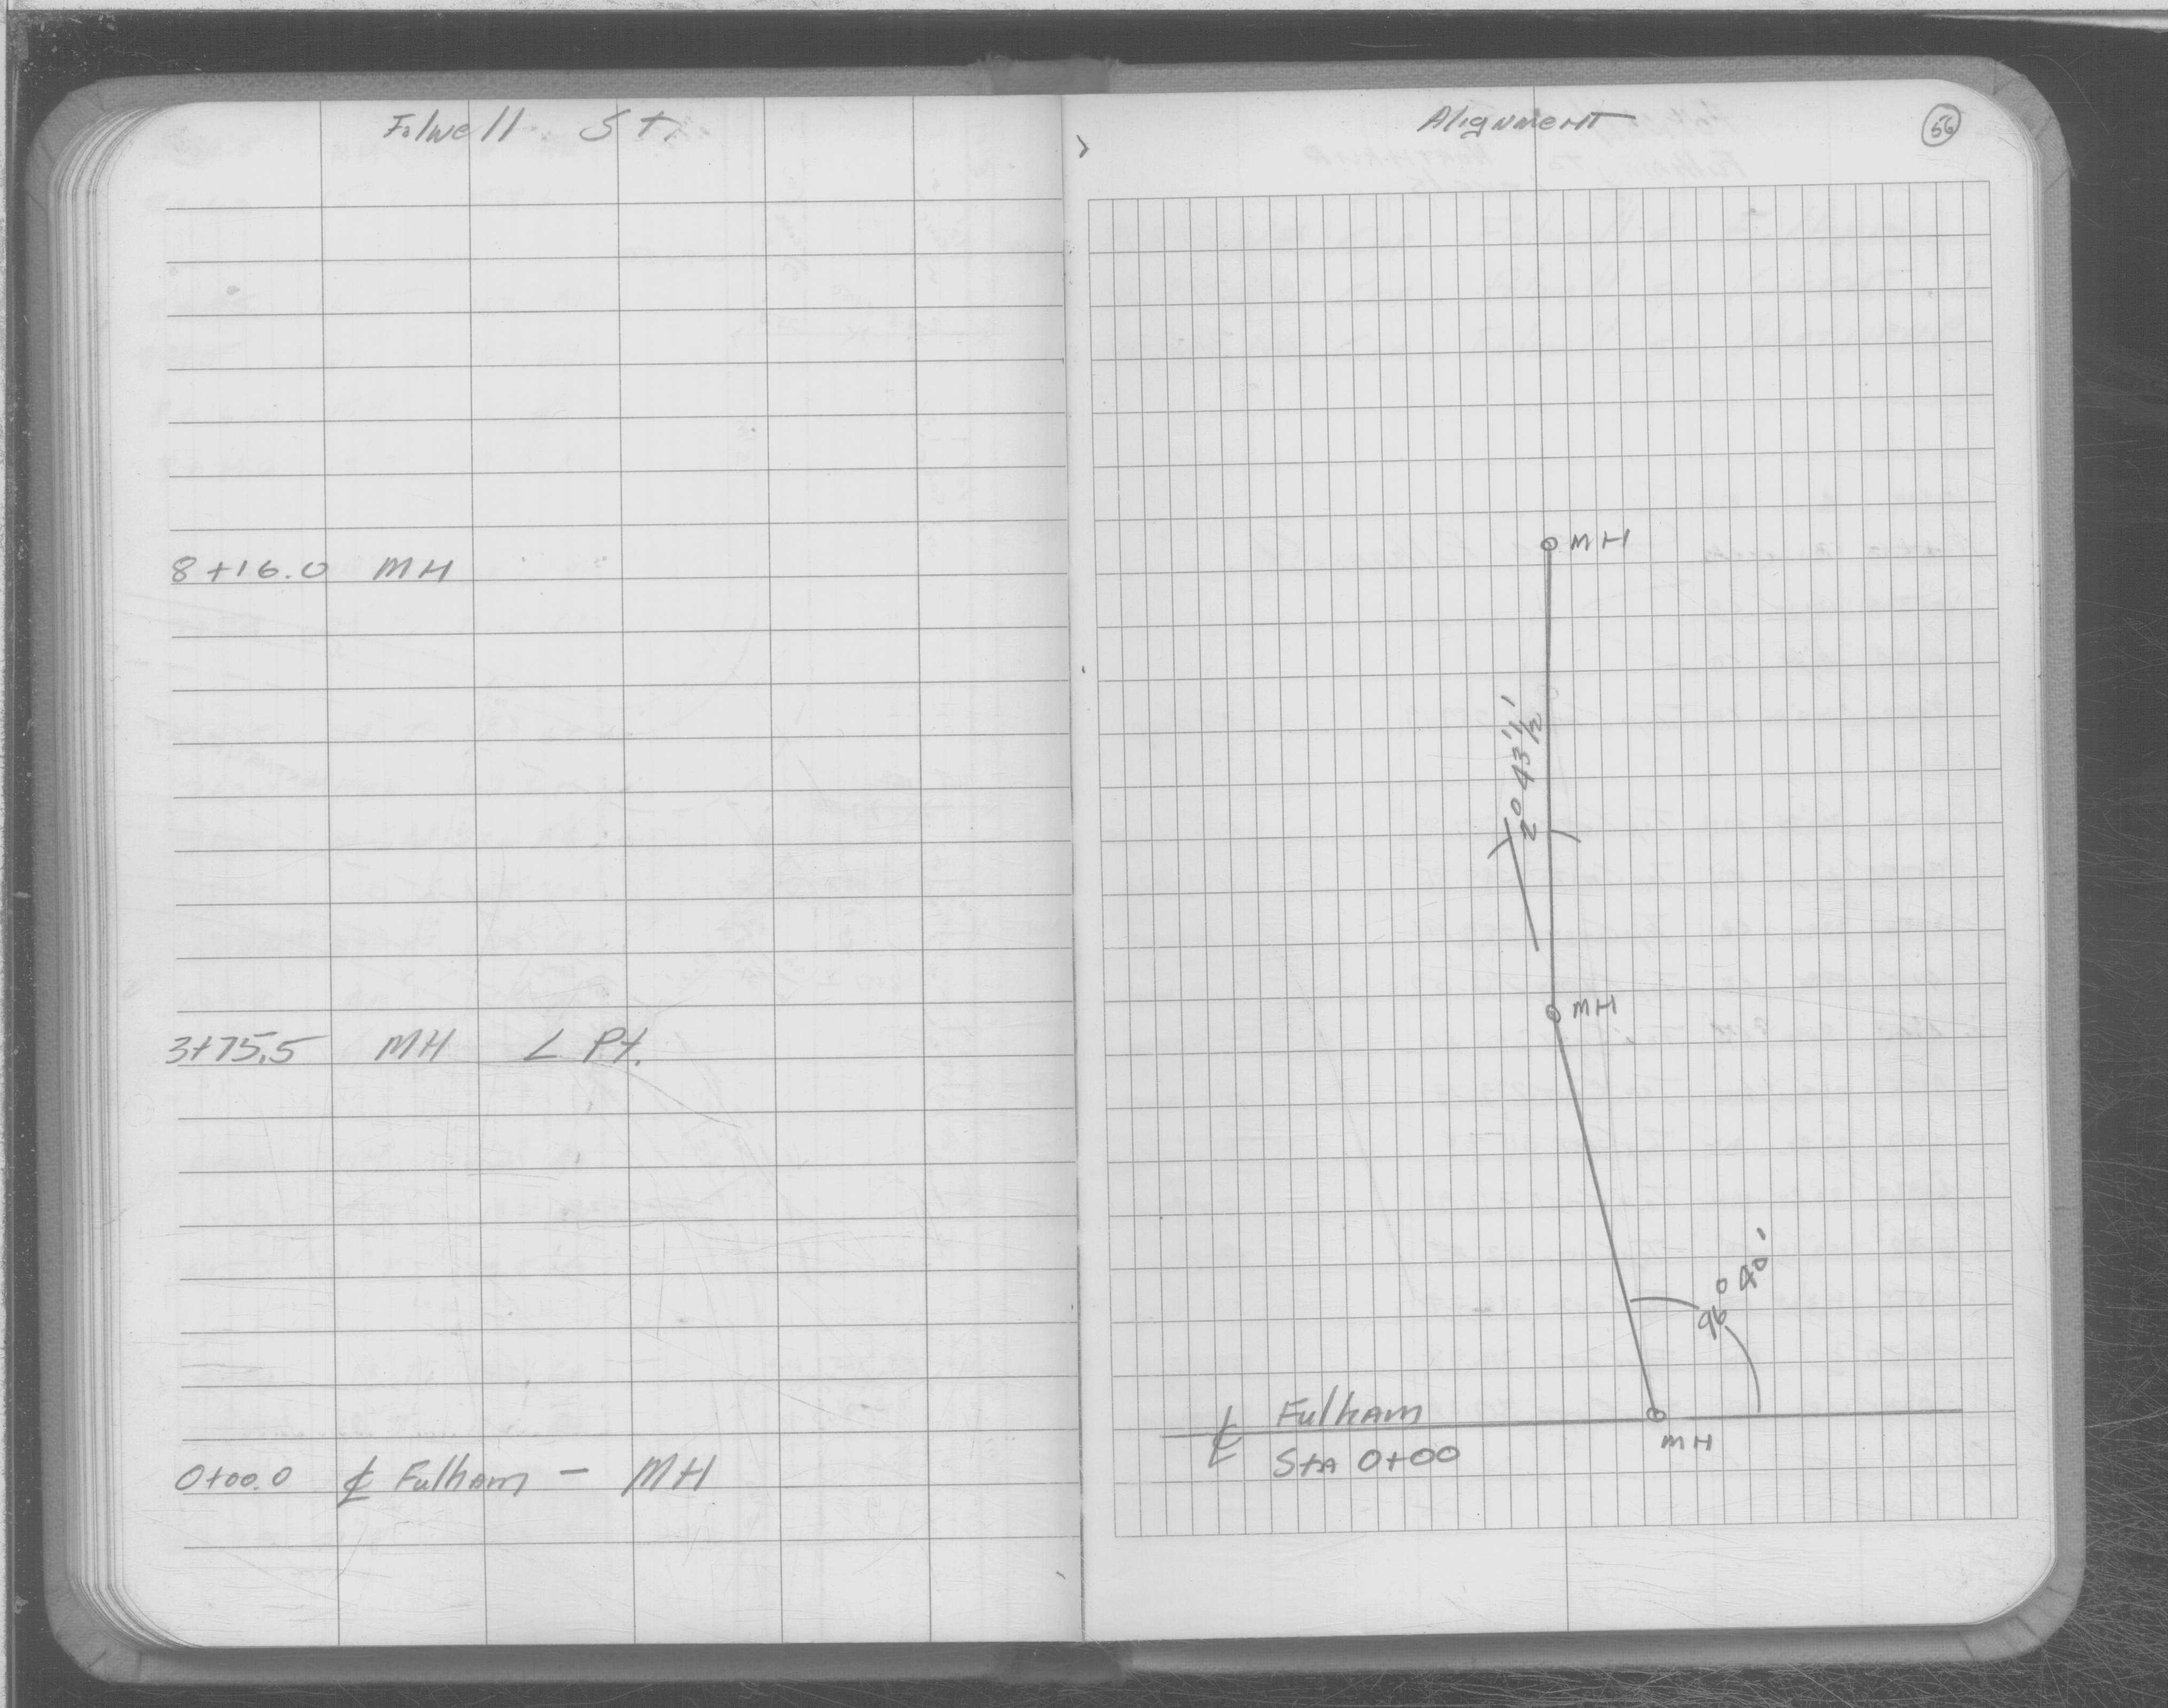 Folwell St.
8+16.0 MH
3+75.5 MH ∠ Pt.
0+00.0 ℄ Fulham - MH
Alignment
56
MH
2° 43 1/2'
MH
96° 40'
℄ Fulham
MH
Sta 0+00